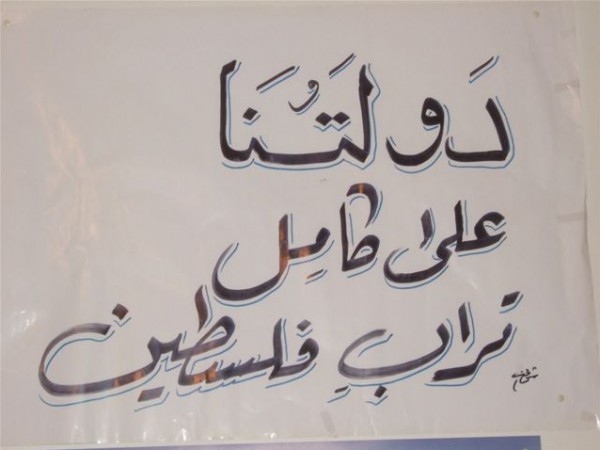 دَولَتُنَا
على كامِل
ترابِ فلسطين